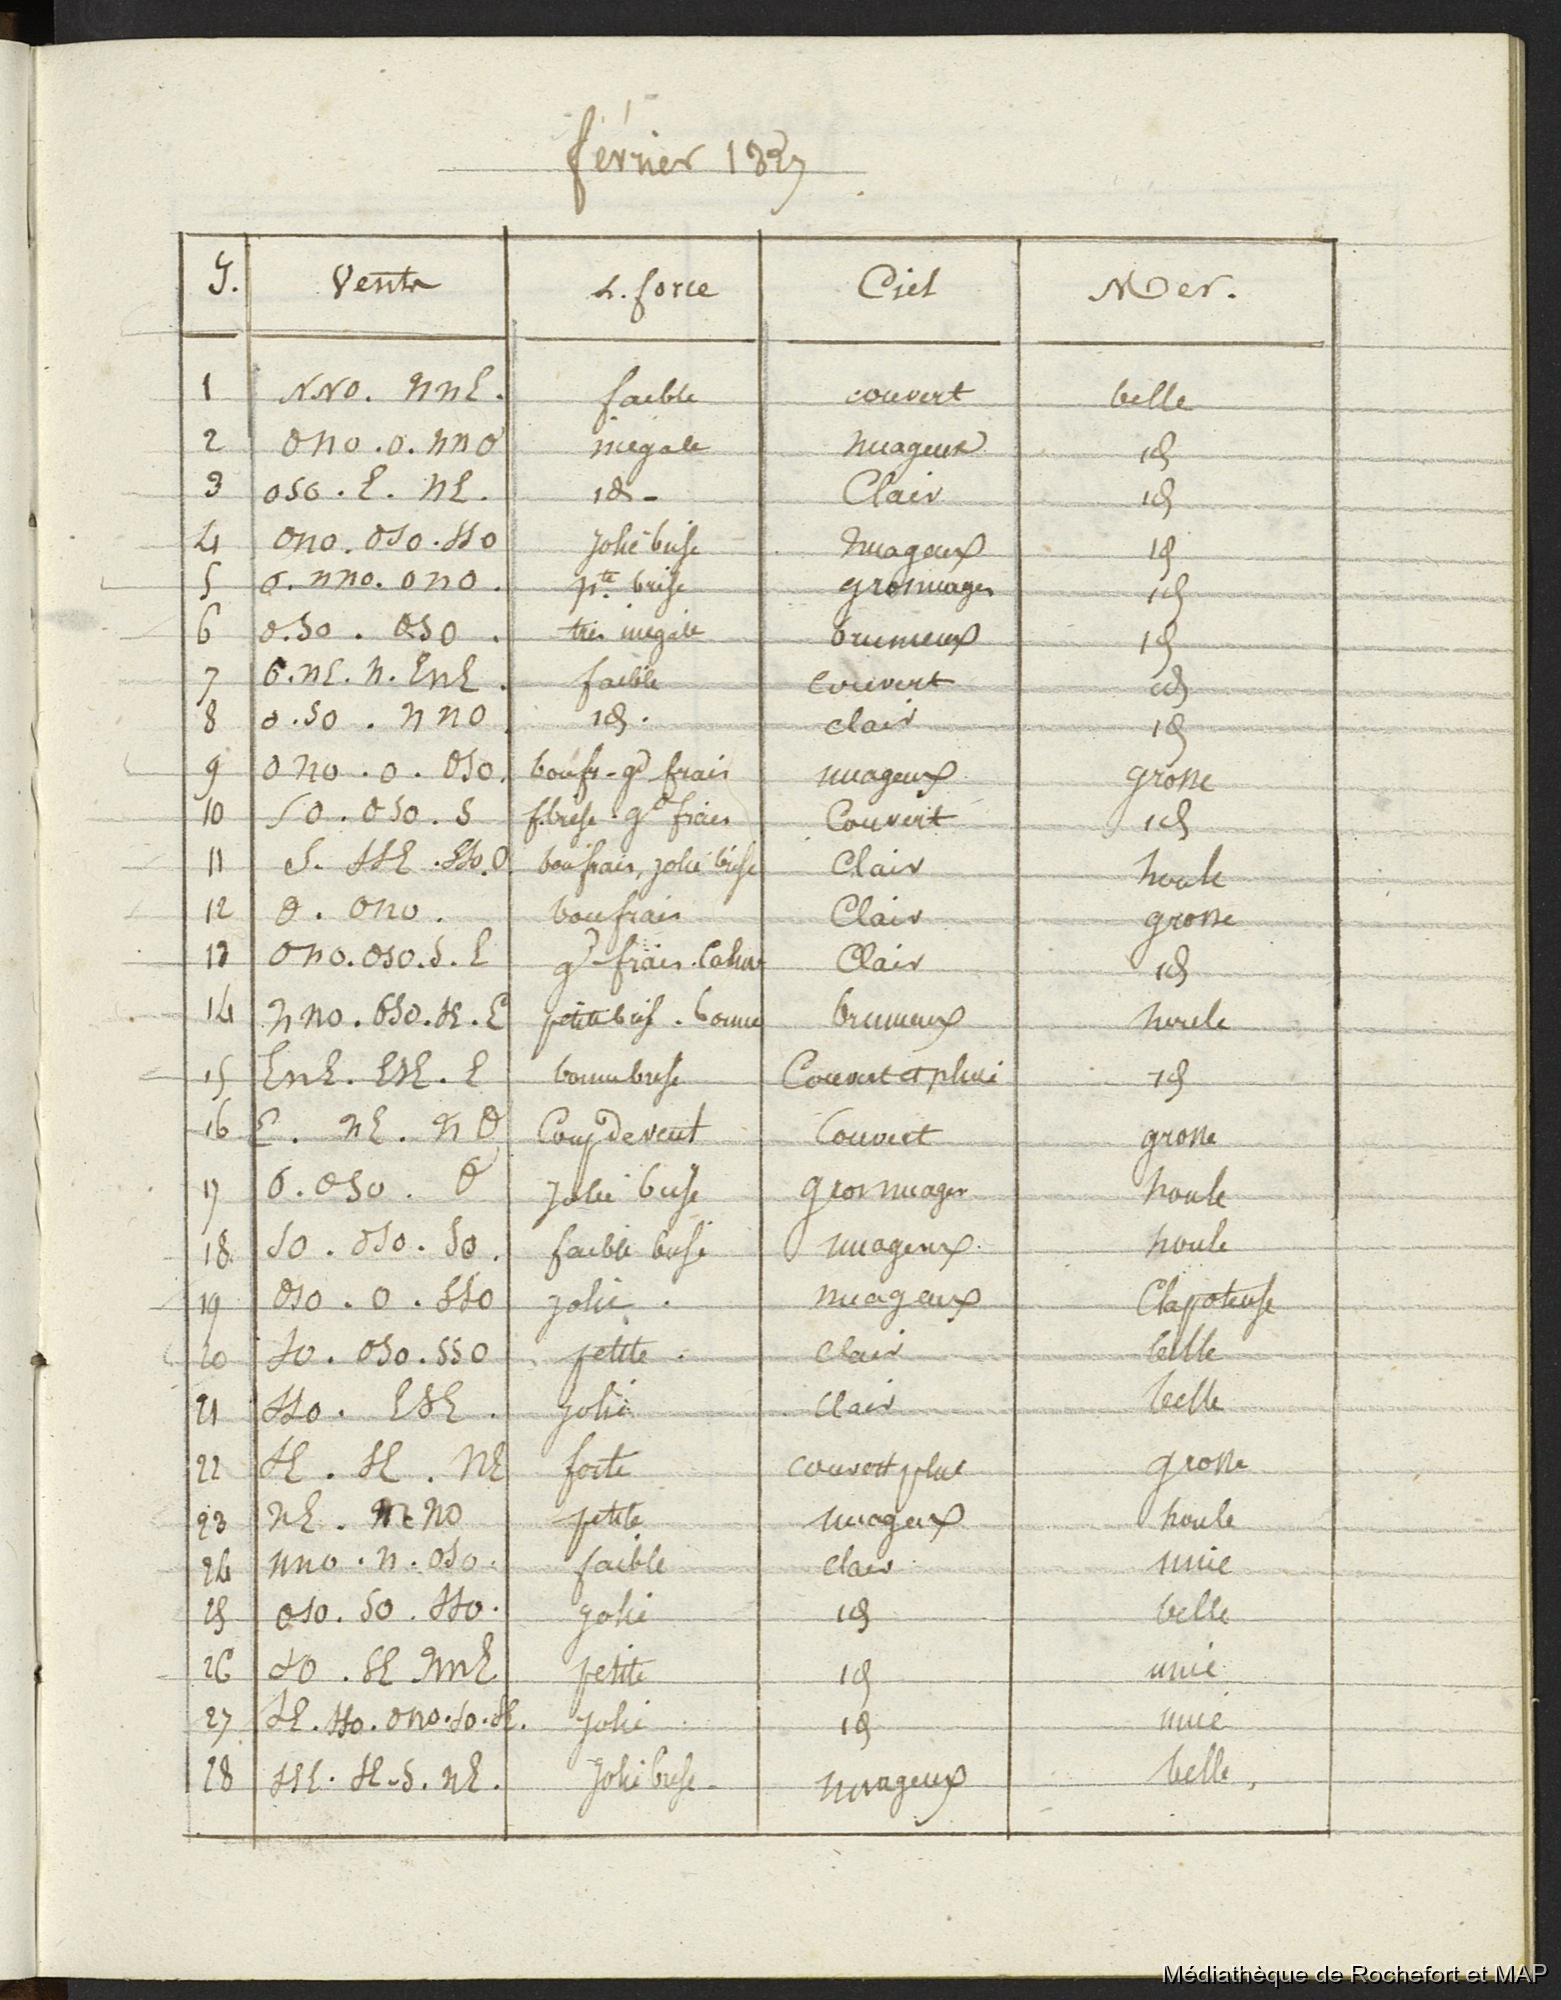 février 1827
J. Vents L. force Ciel Mer.
1 NNO. NNE. faible couvert belle
2 ONO. O. NNO inégale nuageux id
3 OSO. E. NE. id - Clair id
4 ONO. OSO. SSO jolie brise Nuageux id
5 O. NNO. ONO. pte. brise gros nuages id
6 O. SO. OSO. très inégale brumeux id
7 O. NE. N. ENE. faible couvert id
8 O. SO. NNO id. clair id
9 ONO. O. OSO. bonfr. gd frais nuageux grosse
10 SO. OSO. S f. brise gd frais Couvert id
11 S. SSE. SSO. O bonfrais, jolie brise Clair houle
12 O. ONO. bonfrais Clair grosse
13 ONO. OSO. S. E gd frais. Calme Clair id
14 NNO. OSO. SE. E petite bris. bonne brumeux houle
15 ENE. ESE. E bonne brise Couvert et pluie id
16 E. NE. NO Coup de vent Couvert grosse
17 O. OSO. O jolie brise gros nuages houle
18 SO. OSO. SO. faible brise nuageux. houle
19 OSO. O. SSO jolie. nuageux Clapoteuse
20 SO. OSO. SSO petite. clair belle
21 SSO. ESE. jolie clair belle
22 SE. SE. NE forte couvert pluie grosse
23 NE. NO petite nuageux houle
24 NNO. N. OSO. faible clair unie
25 OSO. SO. SSO. jolie id belle
26 SO. SE NNE petite id unie
27 SE. SSO. ONO. SO. SE. jolie id unie
28 SSE. SE. S. NE. Jolie brise - nuageux belle.
Médiathèque de Rochefort et MAP